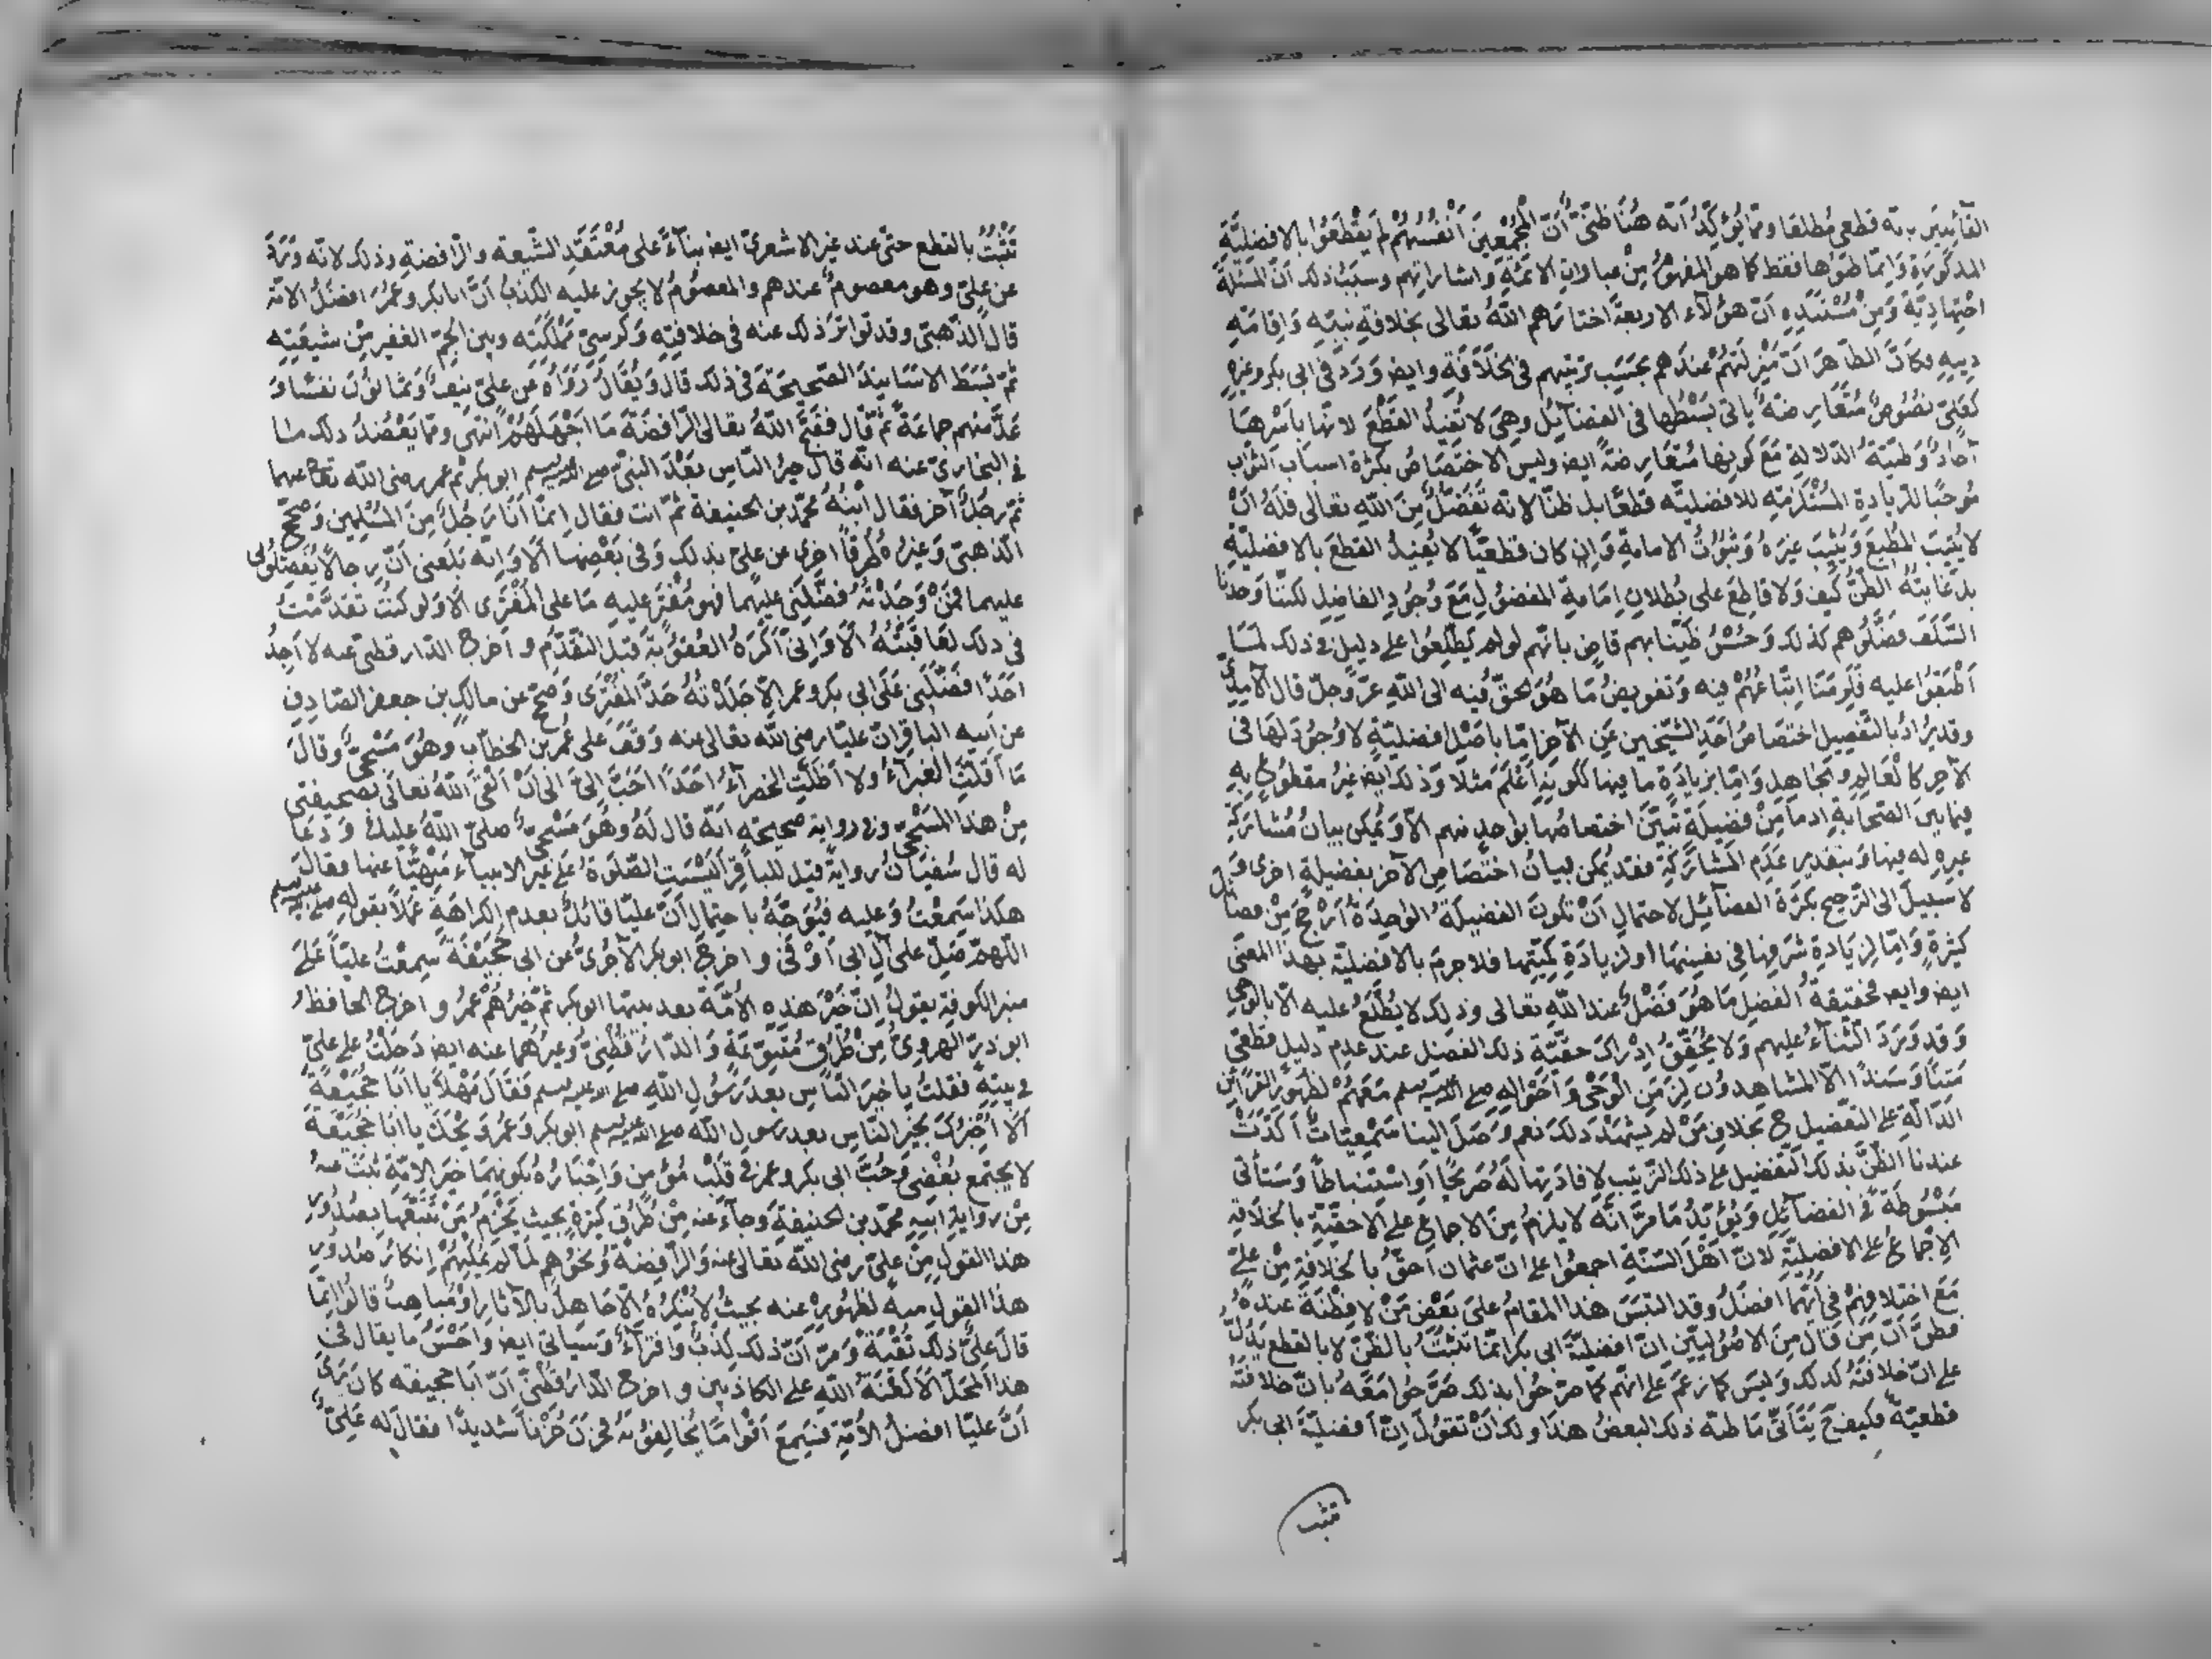 القائلين بانه قطعي مطلقا ومما يؤكد انه هنا ظني ان المجمعين انفسهم لم يقطعوا بالافضلية
المذكورة وانما ظنوها فقط كما هو المفهوم من عبارات الائمة واشاراتهم وسبب ذلك ان المسئلة
اجتهادية ومن مستنده ان هؤلاء الاربعة اختارهم الله تعالى بخلافة نبيه واقامة
دينه فكان الظاهر ان منزلتهم عندهم بحسب ترتيبهم في الخلافة وايض ورد في ابي بكر وغيره
كعلي نصوص متعارضة ياتي بسطها في الفضائل وهي لا تفيد القطع لانها باسرها
آحاد وظنية الدلالة مع كونها متعارضة ايض وليس الاختصاص بكثرة اسباب الثواب
موجبا للزيادة المستلزمة للافضلية قطعا بل ظنا لانه تفضل من الله تعالى فله ان
لا يثيب المطيع ويثيب غيره وثبوت الامامة وان كان قطعيا لا يفيد القطع بالافضلية
بل غايته الظن كيف ولا قاطع على بطلان امامة المفضول مع وجود الفاضل لكننا وجدنا
السلف فضلوهم كذلك وحسن ظننا بهم قاض بانهم لو لم يطلعوا على دليل في ذلك لما
اطبقوا عليه فلزمنا اتباعهم فيه وتفويض ما هو الحق فيه الى الله عز وجل قال الآمدي
وقد يراد بالتفضيل اختصاص احد الشيخين عن الآخر اما باصل افضلية لا وجود لها في
الآخر كالعالم والجاهل واما بزيادة ما فيها ككونه اعلم مثلا وذلك ايض غير مقطوع به
فيما بين الصحابة اذ ما من فضيلة تبين اختصاصها بواحد منهم الا ويمكن بيان مشاركة
غيره له فيها وبتقدير عدم المشاركة فقد يمكن بيان اختصاص الآخر بفضيلة اخرى و
لا سبيل الى الترجيح بكثرة الفضائل لاحتمال ان تكون الفضيلة الواحدة ارجح من فضائل
كثيرة واما لزيادة شرفها في نفسها او لزيادة كميتها فلا جزم بالافضلية بهذا المعنى
ايض وايض فحقيقة الفضل ما هو فضل عند الله تعالى وذلك لا يطلع عليه الا بالوحي
وقد ورد الثناء عليهم ولا يحقق ادراك حقية ذلك الفضل عند عدم دليل قطعي
متنا وسندا الا المشاهدون لزمن الوحي واحواله صلى الله عليه وسلم معهم لظهور القرائن
الدالة على التفضيل ح بخلاف من لم يشهد ذلك نعم وصل الينا سمعيات اكدت
عندنا الظن بذلك التفضيل على ذلك الترتيب لافادتها له صريحا او استنباطا وستأتي
مبسوطة في الفضائل ويؤيد ما مر انه لا يلزم من الاجماع على الاحقية بالخلافة
الاجماع على الافضلية لان اهل السنة اجمعوا على ان عثمان احق بالخلافة من علي
مع اختلافهم في ايهما افضل وقد التبس هذا المقام على بعض من لا فطنة عنده
فظن ان من قال من الاصوليين ان افضلية ابي بكر انما تثبت بالظن لا بالقطع يدل
على ان خلافته كذلك وليس كما زعم على انهم كما صرحوا بذلك صرحوا معه بان خلافته
قطعية فكيف ح يتأتى ما ظنه ذلك البعض هذا ولك ان تقول ان افضلية ابي بكر
تثبت
تثبت بالقطع حتى عند غير الاشعري ايض بناء على معتقد الشيعة والرافضة وذلك لانه ورد
عن علي وهو معصوم عندهم والمعصوم لا يجوز عليه الكذب ان ابا بكر وعمر افضل الامة
قال الذهبي وقد تواتر ذلك عنه في خلافته وكرسي مملكته وبين الجم الغفير من شيعته
ثم بسط الاسانيد الصحيحة في ذلك قال ويقال رواه عن علي نيف وثمانون نفسا و
عد منهم جماعة ثم قال فقبح الله تعالى الرافضة ما اجهلهم انتهى ومما يعضد ذلك ما
في البخاري عنه انه قال خير الناس بعد النبي صلى الله عليه وسلم ابو بكر ثم عمر رضى الله تعالى عنهما
ثم رجل آخر فقال ابنه محمد بن الحنيفة ثم انت فقال انما انا رجل من المسلمين وصحح
الذهبي وغيره طرقا اخرى عن علي بذلك وفي بعضها الا وانه بلغني ان رجالا يفضلوني
عليهما فمن وجدته فضلني عليهما فهو مفتر عليه ما على المفترى الا ولو كنت تقدمت
في ذلك لعاقبته الا واني اكره العقوبة قبل التقدم واخرج الدار قطني عنه لا اجد
احدا فضلني على ابي بكر وعمر الا جلدته حد المفترى وصح عن مالك بن جعفر الصادق
عن ابيه الباقر ان عليا رضى الله تعالى عنه وقف على عمر بن الخطاب وهو مسجى وقال
ما اقلت الغبراء ولا اظلت الخضراء احدا احب الى الى ان القى الله تعالى بصحيفته
من هذا المسجى وفي رواية صحيحة انه قال له وهو مسجى صلى الله عليك ودعا
له قال سفيان رواية قيل للباقر اليست الصلوة على غير الانبياء منهيا عنها فقال
هكذا سمعت وعليه فيوجه باحتمال ان عليا قائل بعدم الكراهة عملا بقوله صلى الله عليه وسلم
اللهم صل على آل ابي اوفى واخرج ابو بكر الآجري عن ابي جحيفة سمعت عليا على
منبر الكوفة يقول ان خير هذه الامة بعد نبيها ابو بكر ثم خيرهم عمر واخرج الحافظ
ابو ذر الهروي من طرق متنوعة والدار قطني وغيرهما عنه ايض دخلت على علي
في بيته فقلت يا خير الناس بعد رسول الله صلى الله عليه وسلم فقال مهلا يا ابا جحيفة
الا اخبرك بخير الناس بعد رسول الله صلى الله عليه وسلم ابو بكر وعمر ويحك يا ابا جحيفة
لا يجتمع بغضي وحب ابي بكر وعمر في قلب مؤمن واخباره بكونهما خير الامة ثبت عنه
من رواية ابنه محمد بن الحنيفة وجاء عنه من طرق كثيرة بحيث يجزم من تتبعها بصدور
هذا القول من علي رضى الله تعالى عنه والرافضة ونحوهم لما لم يمكنهم انكار صدور
هذا القول منه لظهوره عنه بحيث لا ينكره الا جاهل بالآثار او مباهت قالوا انما
قال علي ذلك تقية ومر ان ذلك كذب وافتراء وسيأتي ايض واحسن ما يقال في
هذا المحل الا لعنة الله على الكاذبين واخرج الدار قطني ان ابا جحيفة كان يرى
ان عليا افضل الامة فسمع اقواما يخالفونه فحزن حزنا شديدا فقال له علي